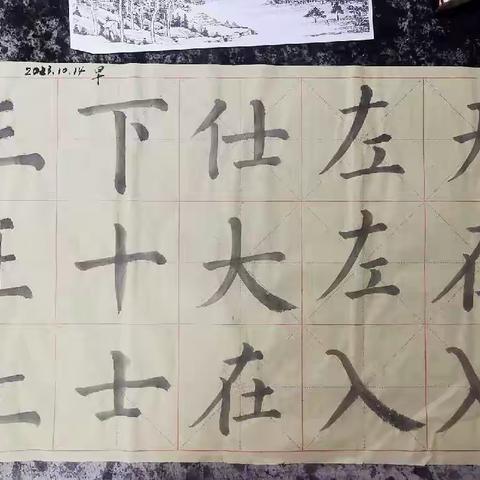 2023.10.14 早
三 下 仕 左
十 大 左
二 士 在 入